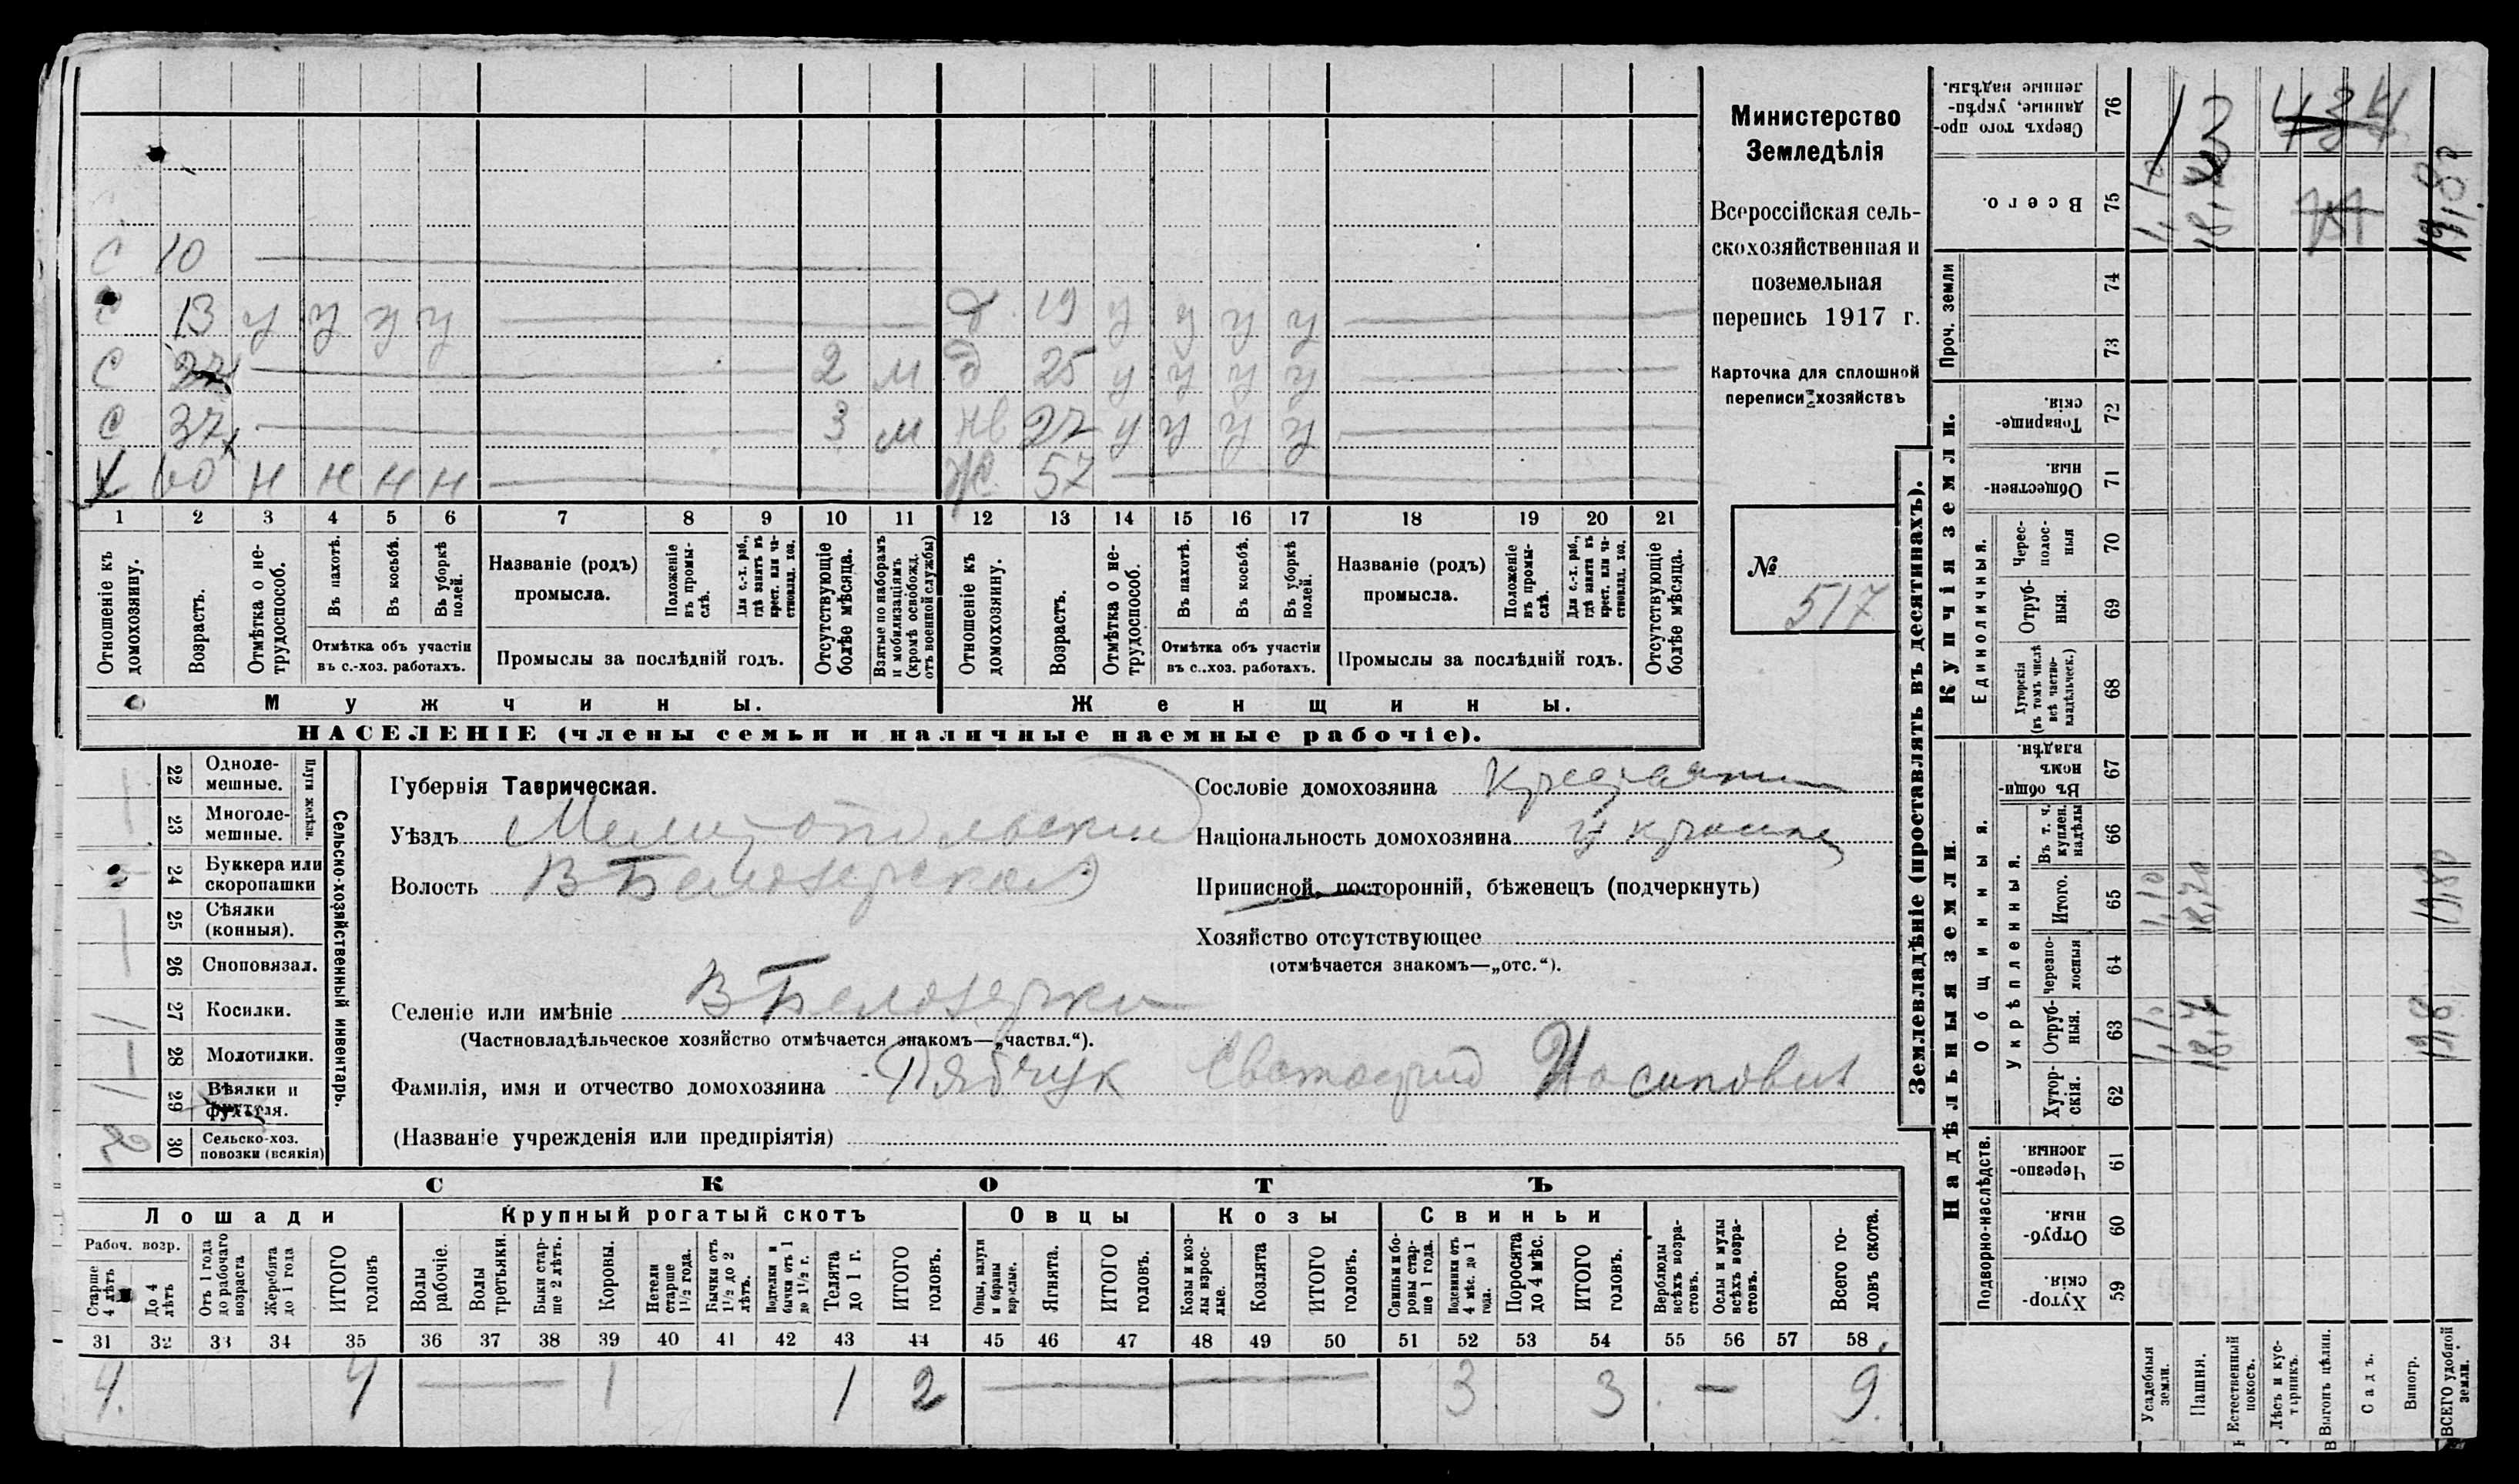 С 10
С 13 у у у у д. 19 у у у у
С 27 2 м д 25 у у у у
С 37 3 м нв 27 у у у у
Х 60 н н н н Ж. 57
1 2 3 4 5 6 7 8 9 10 11 12 13 14 15 16 17 18 19 20 21
Отношеніе къ домохозяину.
Возрастъ.
Отмѣтка о не-трудоспособ.
Въ пахотѣ.
Въ косьбѣ.
Въ уборкѣ полей.
Отмѣтка объ участіи
въ с.-хоз. работахъ.
Названіе (родъ)
промысла.
Положеніе въ промы-слѣ.
Для с.-х. раб., гдѣ занятъ въ крест. или ча-стновлад. хоз.
Промыслы за послѣдній годъ.
Отсутствующіе болѣе мѣсяца.
Взятые по наборамъ и мобилизаціямъ (кромѣ освобожд. отъ военной службы)
Отношеніе къ домохозяину.
Возрастъ.
Отмѣтка о не-трудоспособ.
Въ пахотѣ.
Въ косьбѣ.
Въ уборкѣ полей.
Отмѣтка объ участіи
въ с.-хоз. работахъ.
Названіе (родъ)
промысла.
Положеніе въ промы-слѣ.
Для с.-х. раб., гдѣ занята въ крест. или ча-стновлад. хоз.
Промыслы за послѣдній годъ.
Отсутствующіе болѣе мѣсяца.
Мужчины. Женщины.
НАСЕЛЕНІЕ (члены семьи и наличные наемные рабочіе).
Министерство
Земледѣлія
Всероссійская сель-
скохозяйственная и
поземельная
перепись 1917 г.
Карточка для сплошной
переписи хозяйствъ
№
517
22 Одноле-мешные.
23 Многоле-мешные.
Плуги желѣзн.
24 Буккера или скоропашки
25 Сѣялки (конныя).
26 Сноповязал.
27 Косилки. 1
28 Молотилки.
29 Вѣялки и фухтеля. 1
30 Сельско-хоз. повозки (всякія) 2
Сельско-хозяйственный инвентарь.
Губернія Таврическая.
Уѣздъ Мелитопольскій
Волость В Белозерская
Селеніе или имѣніе В Белозерка
(Частновладѣльческое хозяйство отмѣчается знакомъ—„частвл.“).
Фамилія, имя и отчество домохозяина Рябчук Иосипович
(Названіе учрежденія или предпріятія)
Сословіе домохозяина Крестянин
Національность домохозяина Украинец
Приписной, посторонній, бѣженецъ (подчеркнуть)
Хозяйство отсутствующее
(отмѣчается знакомъ—„отс.“).
СКОТЪ
Лошади Крупный рогатый скотъ Овцы Козы Свиньи
Рабоч. возр.
Старше 4 лѣтъ
До 4 лѣтъ
Отъ 1 года до рабочаго возраста
Жеребята до 1 года
ИТОГО головъ
Волы рабочіе.
Волы третьяки.
Быки стар-ше 2 лѣтъ.
Коровы.
Нетели старше 1½ года.
Бычки отъ 1½ до 2 лѣтъ.
Подтелки и бычки отъ 1 до 1½ г.
Телята до 1 г.
ИТОГО головъ.
Овцы, валухи и бараны взрослые.
Ягнята.
ИТОГО головъ.
Козы и коз-лы взрос-лые.
Козлята
ИТОГО головъ.
Свиньи и бо-ровы стар-ше 1 года.
Подсвинки отъ 4 мѣс. до 1 года.
Поросята до 4 мѣс.
ИТОГО головъ.
Верблюды всѣхъ возра-стовъ.
Ослы и мулы всѣхъ возра-стовъ.
Всего го-ловъ скота.
31 32 33 34 35 36 37 38 39 40 41 42 43 44 45 46 47 48 49 50 51 52 53 54 55 56 57 58
4. 4 1 1 2 3 3 9.
Землевладѣніе (проставлять въ десятинахъ).
Надѣльныя земли.
Купчія земли.
Проч. земли
Подворно-наслѣдств.
Общинныя.
Укрѣпленныя.
Единоличныя.
76 Сверхъ того про-данные, укрѣп-ленные надѣлы.
75 Всего. 1,10 18,70 19,80
74
73
72 Товарище-скія.
71 Обществен-ныя.
70 Черес-полос-ныя
69 Отруб-ныя.
68 Хуторскія (въ томъ числѣ всѣ частно-владѣльческ.)
67 Въ общин-номъ владѣн.
66 Въ т. ч. куплен. надѣлы
65 Итого. 1,10 18,70 19,80
64 Черезпо-лосныя
63 Отруб-ныя. 1,10 18,7 19,8
62 Хутор-скія.
61 Черезпо-лосныя
60 Отруб-ныя.
59 Хутор-скія.
Усадебныя земли.
Пашня.
Естественный покосъ.
Лѣсъ и кус-тарникъ.
Выгонъ цѣлин.
Садъ.
Виногр.
ВСЕГО удобной земли.